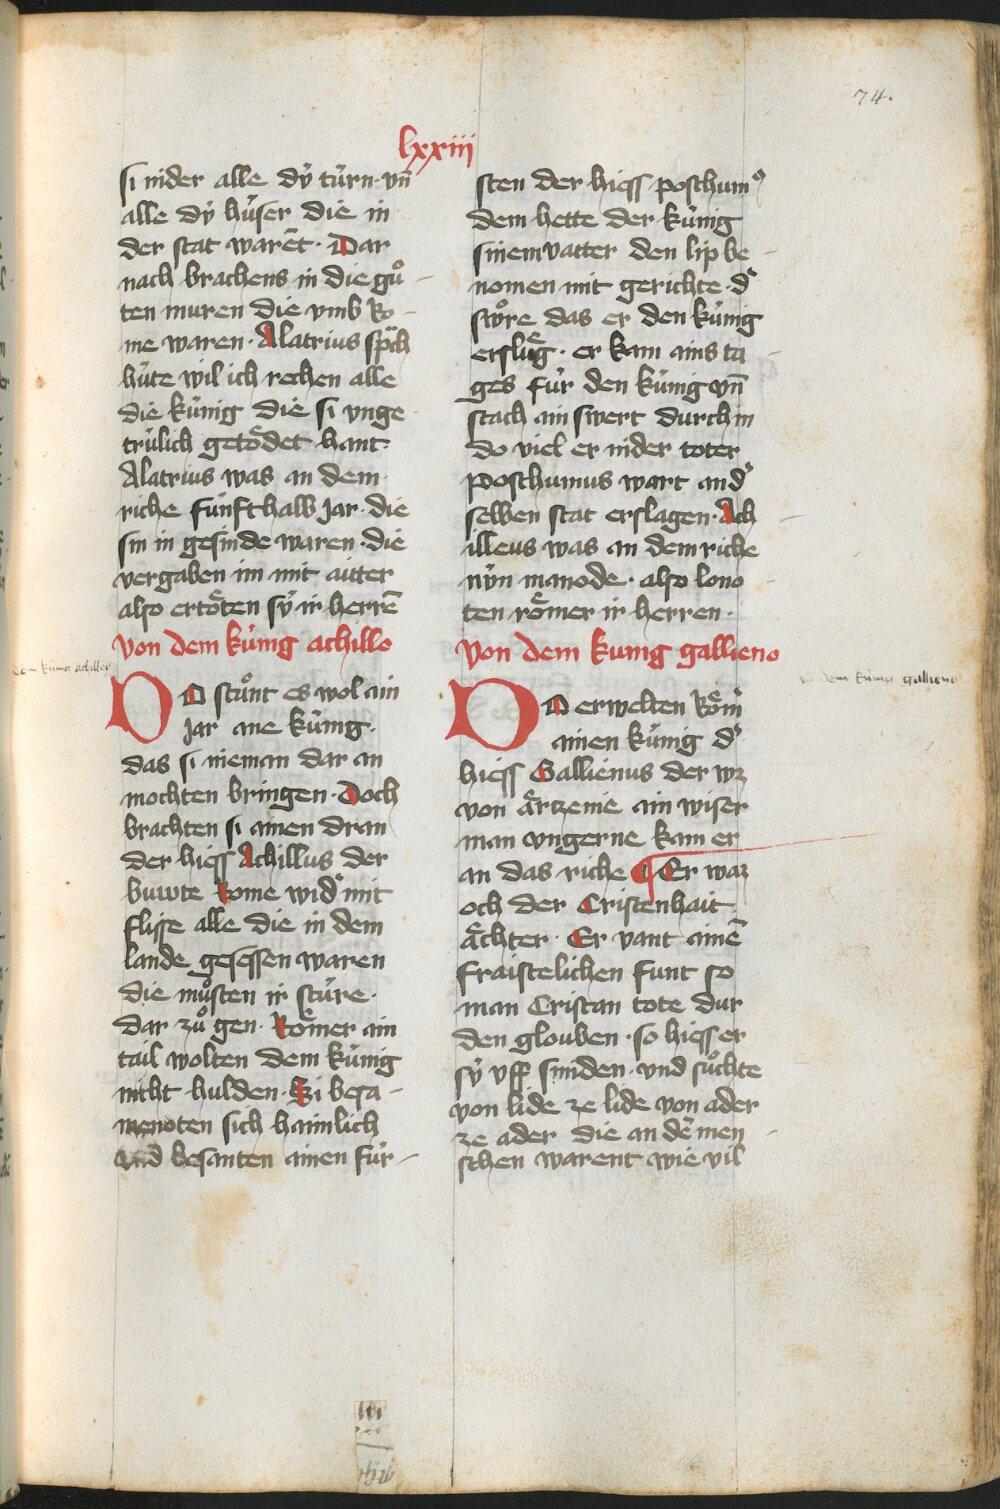 74.
lxxiii
si nider alle dÿ túrn · vn̄
alle dÿ húser die in
der stat warēt · Dar
nach brachens in die gů
ten muren die vmb Ro
me waren · Alatrius sp̄ch
húte wil ich rechen alle
die kúnig die si vnge
trúlich getoͤdet hant ·
Alatrius was an dem
riche fúnfthalb Jar · die
sin in gesinde waren · die
vergaben im mit aitter
also ertoͤten sÿ ir herrē
von dem kúnig achillo
dem kúnig achilleo
DO stuͦnt es wol ain
Jar ane kúnig ·
das si nieman dar an
mochten bringen · Doch
brachten si ainen dran
der hiess Achillus der
buwte Rome wid͛ mit
flisse alle die in dem
lande gesessen waren
die muͦsten ir stúre ·
dar zuͦ gen · Roͤmer ain
tail wolten dem kúnig
nitht hulden · Si besa
menoten sich haimlich
vnd besanten ainen fúr
sten der hiess poschumꝰ
dem hette der kúnig
sinem vatter den lip be
nomen mit gerichte · d͛
swuͦre das er den kúnig
ersluͤg · er kam ains ta
ges fúr den kúnig vn̄
stach ain swert durch in
do viel er nider toter
poschumus wart an d͛
selben stat erslagen · Ach
illeus was an dem riche
nún manode · also lono
ten roͤmer ir herren ·
von dem kunig gallieno
vō dem kúnig gallieno
DO erwelten Roͤm͛
ainen kúnig d͛
hiess Gallienus der wz
von aͤrtzenie ain wiser
man vngerne kam er
an das riche ¶ Er waz
och der Cristenhait
aͤchter · Er vant ainē
fraistelichen funt so
man Cristan tote dur
den glouben · so hiess er
sÿ vff sniden · vnd suͦchte
von lide ze lide von ader
ze ader die an dē men
schen warent wie vil